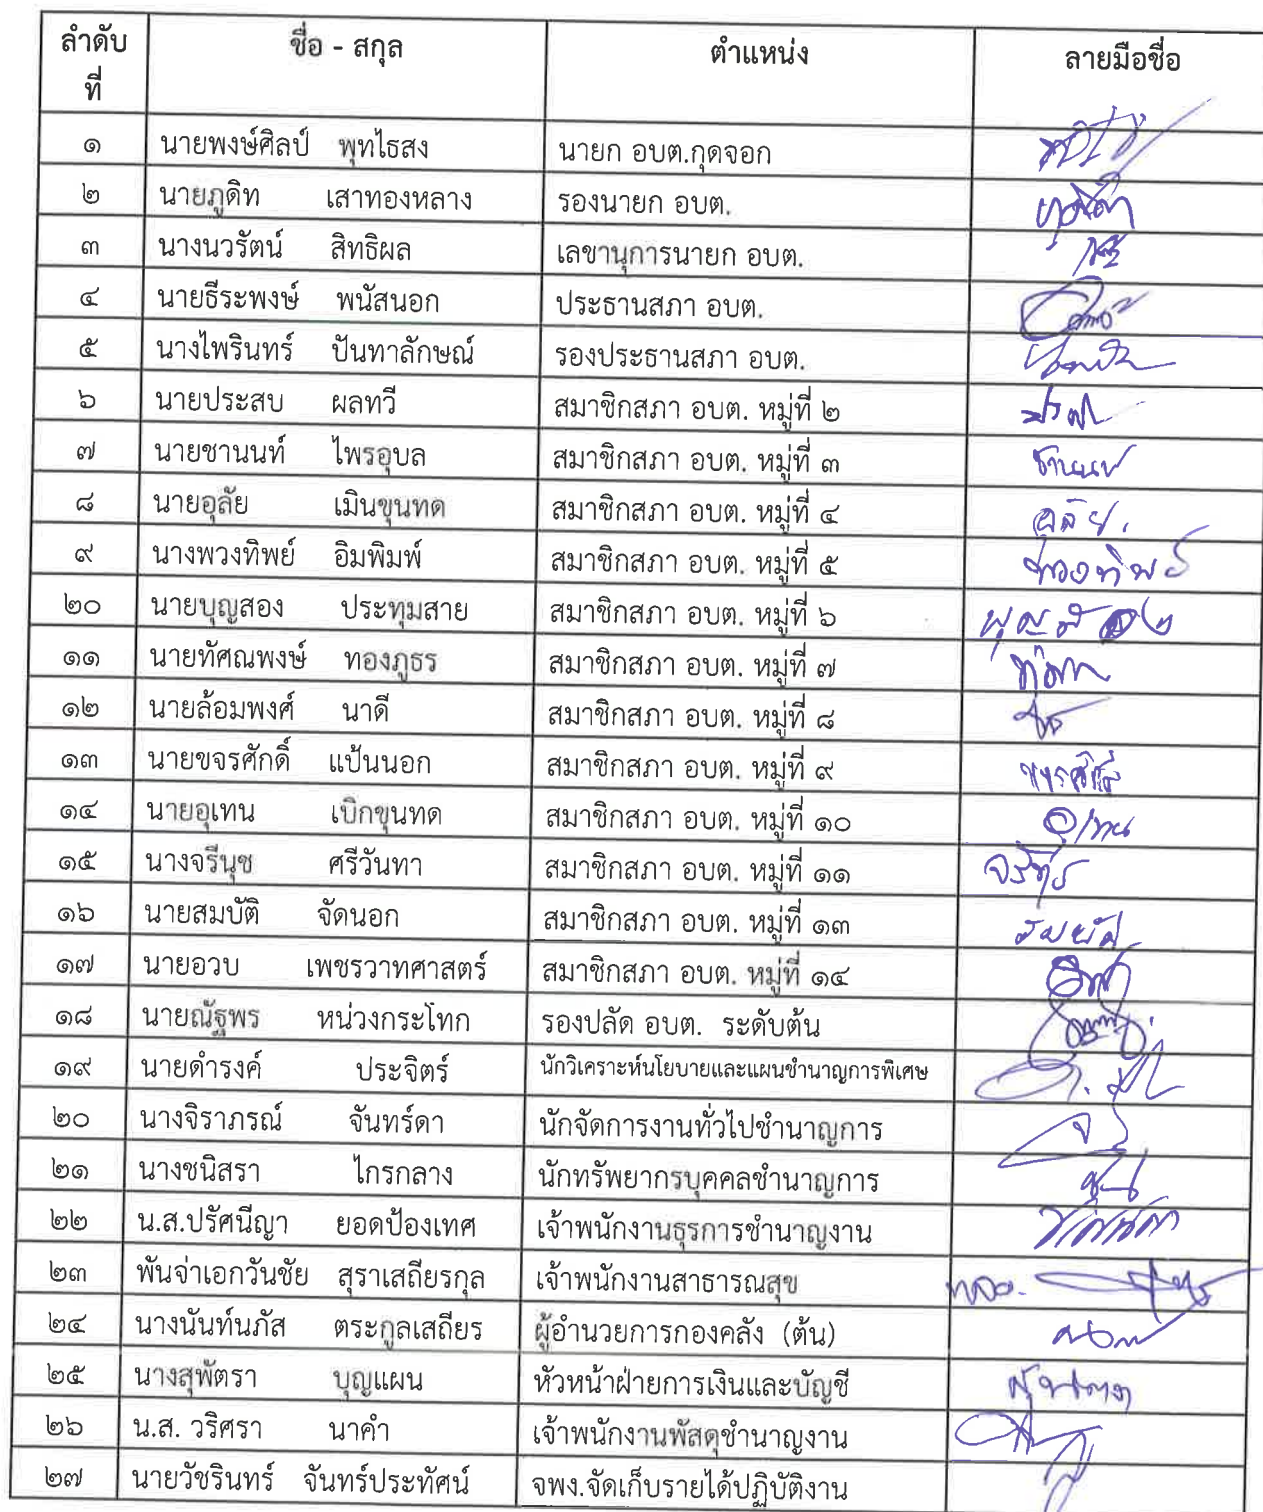 ลำดับที่ ชื่อ - สกุล ตำแหน่ง ลายมือชื่อ
๑ นายพงษ์ศิลป์ พุทไธสง นายก อบต.กุดจอก
๒ นายภูดิท เสาทองหลาง รองนายก อบต.
๓ นางนวรัตน์ สิทธิผล เลขานุการนายก อบต.
๔ นายธีระพงษ์ พนัสนอก ประธานสภา อบต.
๕ นางไพรินทร์ ปันทาลักษณ์ รองประธานสภา อบต.
๖ นายประสบ ผลทวี สมาชิกสภา อบต. หมู่ที่ ๒
๗ นายชานนท์ ไพรอุบล สมาชิกสภา อบต. หมู่ที่ ๓ ชานนท์
๘ นายอุลัย เมินขุนทด สมาชิกสภา อบต. หมู่ที่ ๔ อุลัย.
๙ นางพวงทิพย์ อิมพิมพ์ สมาชิกสภา อบต. หมู่ที่ ๕ พวงทิพย์
๒๐ นายบุญสอง ประทุมสาย สมาชิกสภา อบต. หมู่ที่ ๖ บุญสอง
๑๑ นายทัศณพงษ์ ทองภูธร สมาชิกสภา อบต. หมู่ที่ ๗
๑๒ นายล้อมพงศ์ นาดี สมาชิกสภา อบต. หมู่ที่ ๘
๑๓ นายขจรศักดิ์ แป้นนอก สมาชิกสภา อบต. หมู่ที่ ๙ ขจรศักดิ์
๑๔ นายอุเทน เบิกขุนทด สมาชิกสภา อบต. หมู่ที่ ๑๐ อุเทน
๑๕ นางจรีนุช ศรีวันทา สมาชิกสภา อบต. หมู่ที่ ๑๑
๑๖ นายสมบัติ จัดนอก สมาชิกสภา อบต. หมู่ที่ ๑๓ สมบัติ
๑๗ นายอวบ เพชรวาทศาสตร์ สมาชิกสภา อบต. หมู่ที่ ๑๔
๑๘ นายณัฐพร หน่วงกระโทก รองปลัด อบต. ระดับต้น
๑๙ นายดำรงค์ ประจิตร์ นักวิเคราะห์นโยบายและแผนชำนาญการพิเศษ
๒๐ นางจิราภรณ์ จันทร์ดา นักจัดการงานทั่วไปชำนาญการ
๒๑ นางชนิสรา ไกรกลาง นักทรัพยากรบุคคลชำนาญการ
๒๒ น.ส.ปรัศนีญา ยอดป้องเทศ เจ้าพนักงานธุรการชำนาญงาน
๒๓ พันจ่าเอกวันชัย สุราเสถียรกุล เจ้าพนักงานสาธารณสุข
๒๔ นางนันท์นภัส ตระกูลเสถียร ผู้อำนวยการกองคลัง (ต้น)
๒๕ นางสุพัตรา บุญแผน หัวหน้าฝ่ายการเงินและบัญชี
๒๖ น.ส. วริศรา นาคำ เจ้าพนักงานพัสดุชำนาญงาน
๒๗ นายวัชรินทร์ จันทร์ประทัศน์ จพง.จัดเก็บรายได้ปฏิบัติงาน